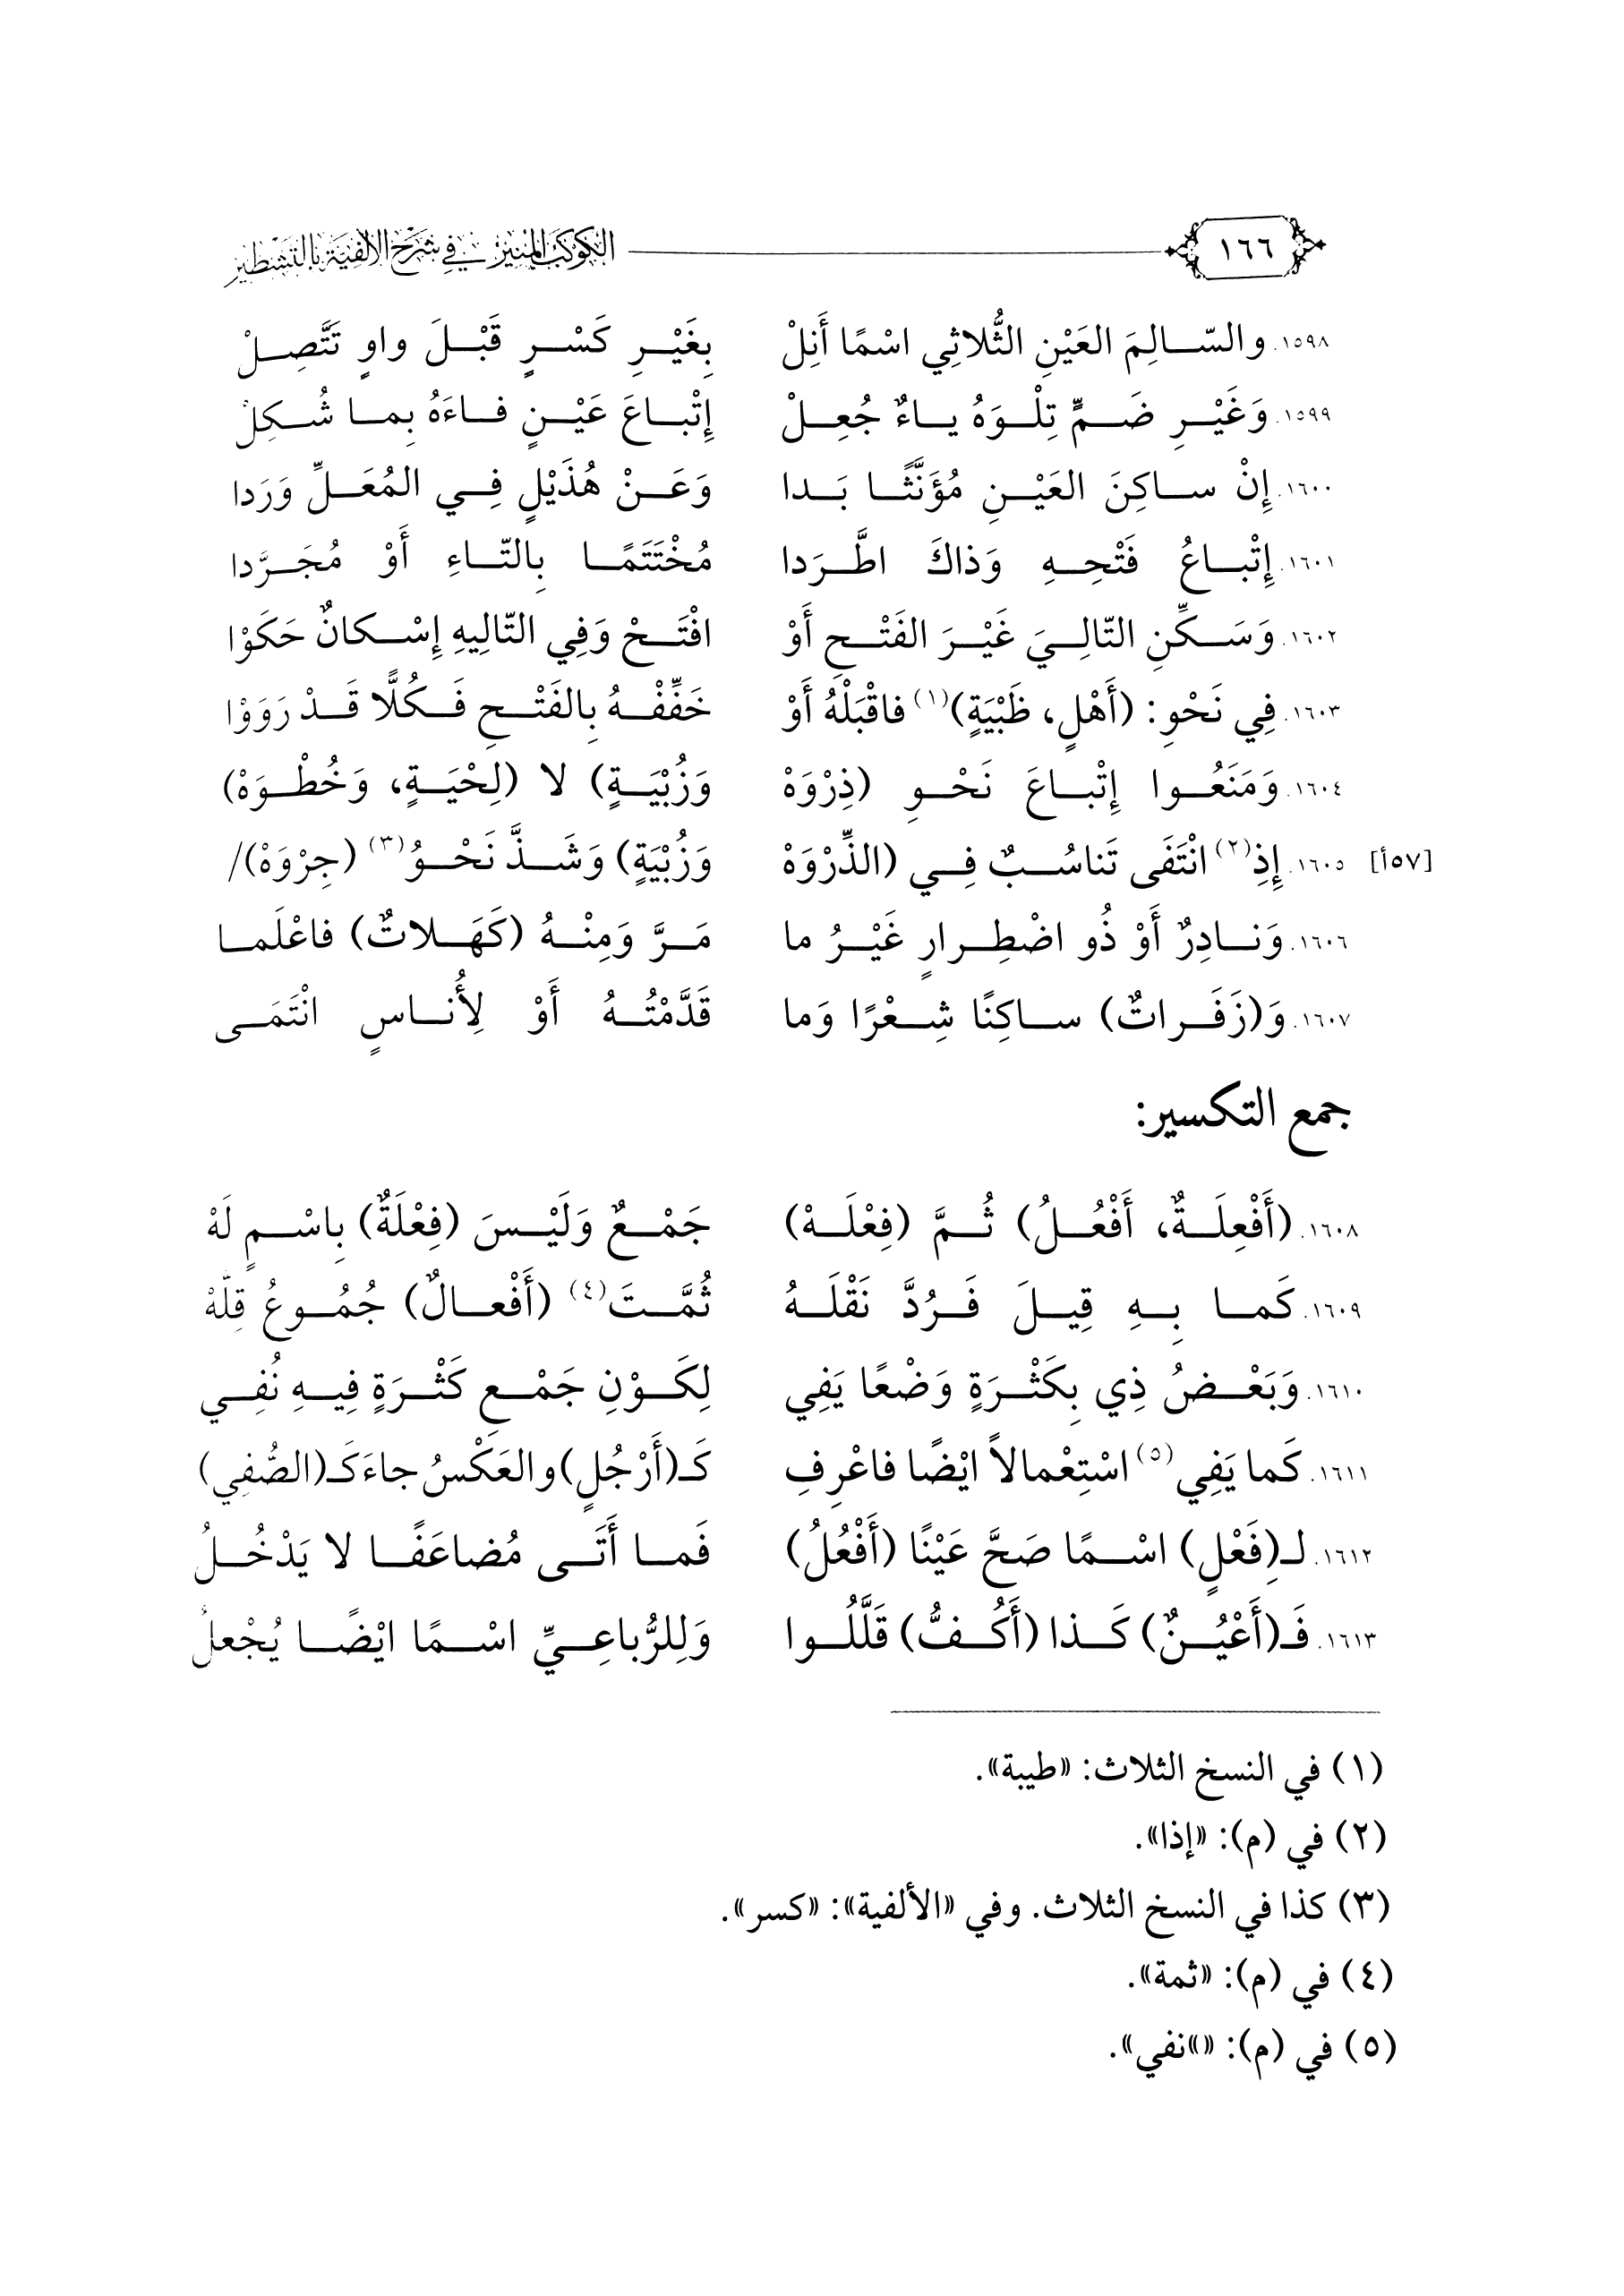 ١٦٦ الكوكب المنير في شرح الألفية بالتشطير
١٥٩٨. والسّالِمَ العَيْنِ الثُّلاثِي اسْمًا أَنِلْ بِغَيْرِ كَسْرٍ قَبْلَ واوٍ تَتَّصِلْ
١٥٩٩. وَغَيْرِ ضَمٍّ تِلْوَهُ ياءٌ جُعِلْ إِتْباعَ عَيْنٍ فاءَهُ بِما شُكِلْ
١٦٠٠. إِنْ ساكِنَ العَيْنِ مُؤَنَّثًا بَدا وَعَنْ هُذَيْلٍ فِي المُعَلِّ وَرَدا
١٦٠١. إِتْباعُ فَتْحِهِ وَذاكَ اطَّرَدا مُخْتَتَمًا بِالتّاءِ أَوْ مُجَرَّدا
١٦٠٢. وَسَكِّنِ التّالِيَ غَيْرَ الفَتْحِ أَوْ افْتَحْ وَفِي التّالِيهِ إِسْكانٌ حَكَوْا
١٦٠٣. فِي نَحْوِ: (أَهْلٍ، ظَبْيَةٍ)(١) فاقْبَلْهُ أَوْ خَفِّفْهُ بِالفَتْحِ فَكُلًّا قَدْ رَوَوْا
١٦٠٤. وَمَنَعُوا إِتْباعَ نَحْوِ (ذِرْوَهْ وَزُبْيَةٍ) لا (لِحْيَةٍ، وَخُطْوَهْ)
[٥٧أ] ١٦٠٥. إِذِ(٢) انْتَفَى تَناسُبٌ فِي (الذِّرْوَهْ وَزُبْيَةٍ) وَشَذَّ نَحْوُ(٣) (جِرْوَهْ)/
١٦٠٦. وَنادِرٌ أَوْ ذُو اضْطِرارٍ غَيْرُ ما مَرَّ وَمِنْهُ (كَهَلاتٌ) فاعْلَما
١٦٠٧. وَ(زَفَراتٌ) ساكِنًا شِعْرًا وَما قَدَّمْتُهُ أَوْ لِأُناسٍ انْتَمَى
جمع التكسير:
١٦٠٨. (أَفْعِلَةٌ، أَفْعُلُ) ثُمَّ (فِعْلَهْ) جَمْعٌ وَلَيْسَ (فِعْلَةٌ) بِاسْمٍ لَهْ
١٦٠٩. كَما بِهِ قِيلَ فَرُدَّ نَقْلَهُ ثُمَّتَ(٤) (أَفْعالٌ) جُمُوعُ قِلَّهْ
١٦١٠. وَبَعْضُ ذِي بِكَثْرَةٍ وَضْعًا يَفِي لِكَوْنِ جَمْعِ كَثْرَةٍ فِيهِ نُفِي
١٦١١. كَما يَفِي(٥) اسْتِعْمالاً ايْضًا فاعْرِفِ كَـ(أَرْجُلٍ) والعَكْسُ جاءَ كَـ(الصُّفِي)
١٦١٢. لـِ(فَعْلٍ) اسْمًا صَحَّ عَيْنًا (أَفْعُلُ) فَما أَتَى مُضاعَفًا لا يَدْخُلُ
١٦١٣. فَـ(أَعْيُنٌ) كَذا (أَكُفُّ) قَلَّلُوا وَلِلرُّباعِيِّ اسْمًا ايْضًا يُجْعلُ
(١) في النسخ الثلاث: «طيبة».
(٢) في (م): «إذا».
(٣) كذا في النسخ الثلاث. وفي «الألفية»: «كسر».
(٤) في (م): «ثمة».
(٥) في (م): «»نفي».